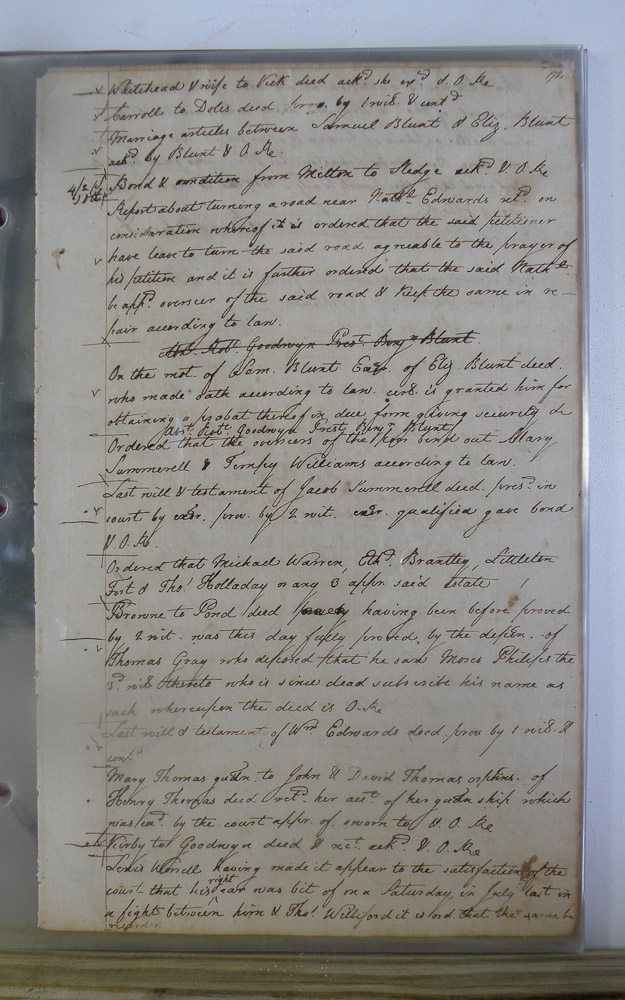 178
Whitehead & wife to Vick deed ackd she exd & O. Re
Carroll to Doles deed prov. by 1 wit. & contd
Marriage articles between Samuel Blunt & Eliz. Blunt
ackd by Blunt & O Re
Bond & condition from Milton to Sledge ackd & O Re
Report about turning a road near Nathl Edwards retd on
consideration whereof it is ordered that the said petitioner
have leave to turn the said road agreable to the prayer of
his petition and it is further ordered that the said Nathl
be appd overseer of the said road & keep the same in re-
pair according to law.
Abst. Robt. Goodwyn Prest. Benja Blunt.
On the mot. of Sam. Blunt Exor. of Eliz. Blunt deed.
who made oath according to law. cert. is granted him for
obtaining a probat thereof in due form giving security &c
Abst. Robt. Goodwyn Prest. Benja Blunt
Ordered that the overseers of the poor bind out Mary
Summerell & Tempy Williams according to law.
Last will & testament of Jacob Summerell deed. pres. in
court by exor. prov. by 2 wit. exor. qualified gave bond
& O. Re.
Ordered that Michael Warren, Ethd. Brantley, Littleton
Fort & Thos. Holladay or any 3 appr. said Estate
Browne to Pond deed having been before proved
by 2 wit. was this day fully proved by the depon. of
Thomas Gray who deposed that he saw Moses Philips the
3d. wit. thereto who is since dead subscribe his name as
such whereupon the deed is O. Re
Last will & testament of Wm. Edwards decd. prov by 1 wit. &
contd
Mary Thomas gudn. to John & David Thomas orphns. of
Henry Thomas deed. retd. her acct. of her gudn ship which
was exd. by the court appr. of sworn to & O. Re
Kirby to Goodwyn deed & rect. ackd. & O. Re
Lewis Worrell having made it appear to the satisfaction of the
court that his right ear was bit of on a Saturday in July last in
a fight between him & Thos. Williford it is ord that the same be
recorded